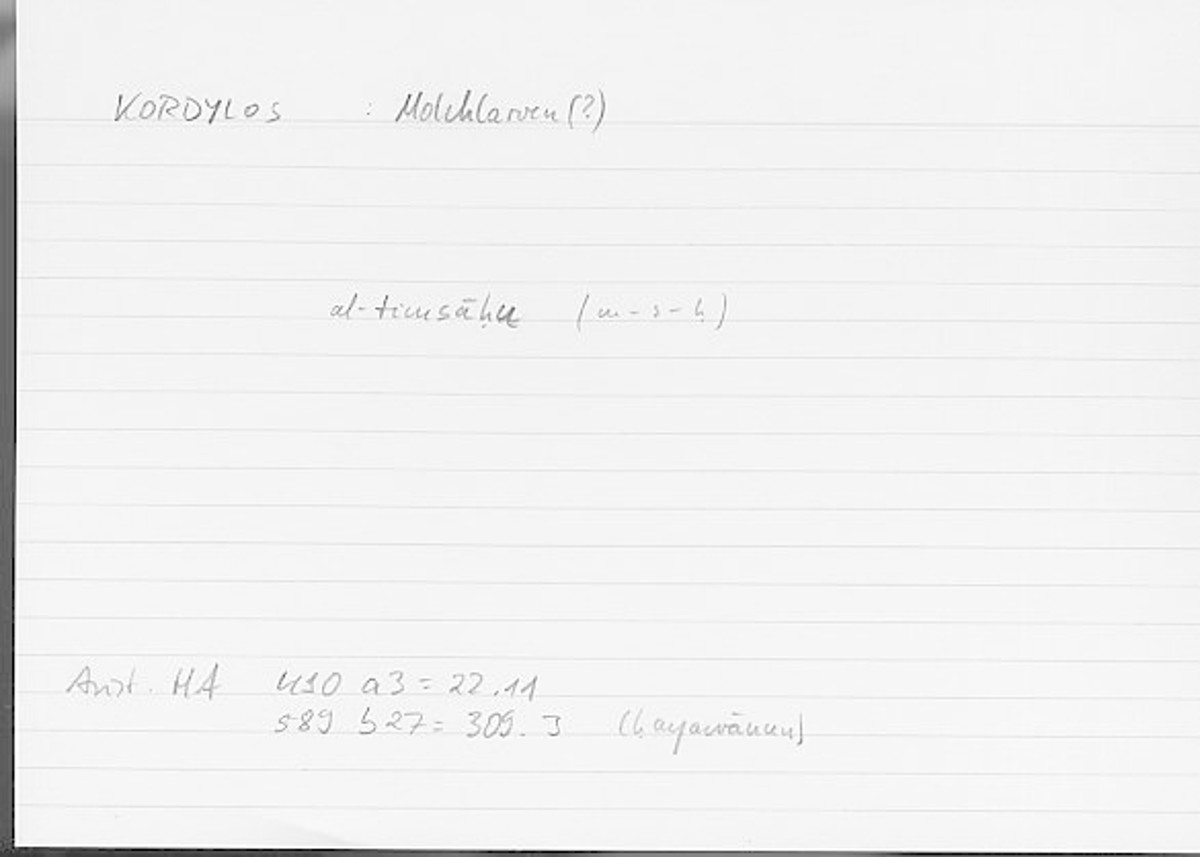 KORDYLOS : Molchlarven (?)
al-timsāḥu (m-s-ḥ)
Arist. HA 490 a3 = 22.11
589 b27 = 309.3 (ḥayawānun)